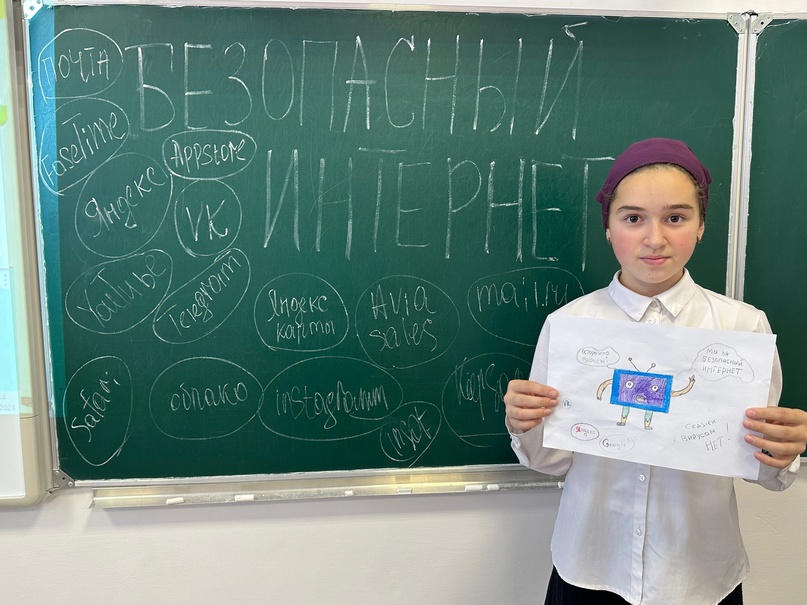 БЕЗОПАСНЫЙ
ИНТЕРНЕТ
ПОЧТА
FaseTime
Appstore
Яндекс
VK
YouTube
Telegram
Яндекс
карты
Avia
sales
mail.ru
Safari
облако
instagramm
МЫ ЗА
БЕЗОПАСНЫЙ
ИНТЕРНЕТ
Яндекс
Google
СКАЖЕМ
ВИРУСАМ
НЕТ!